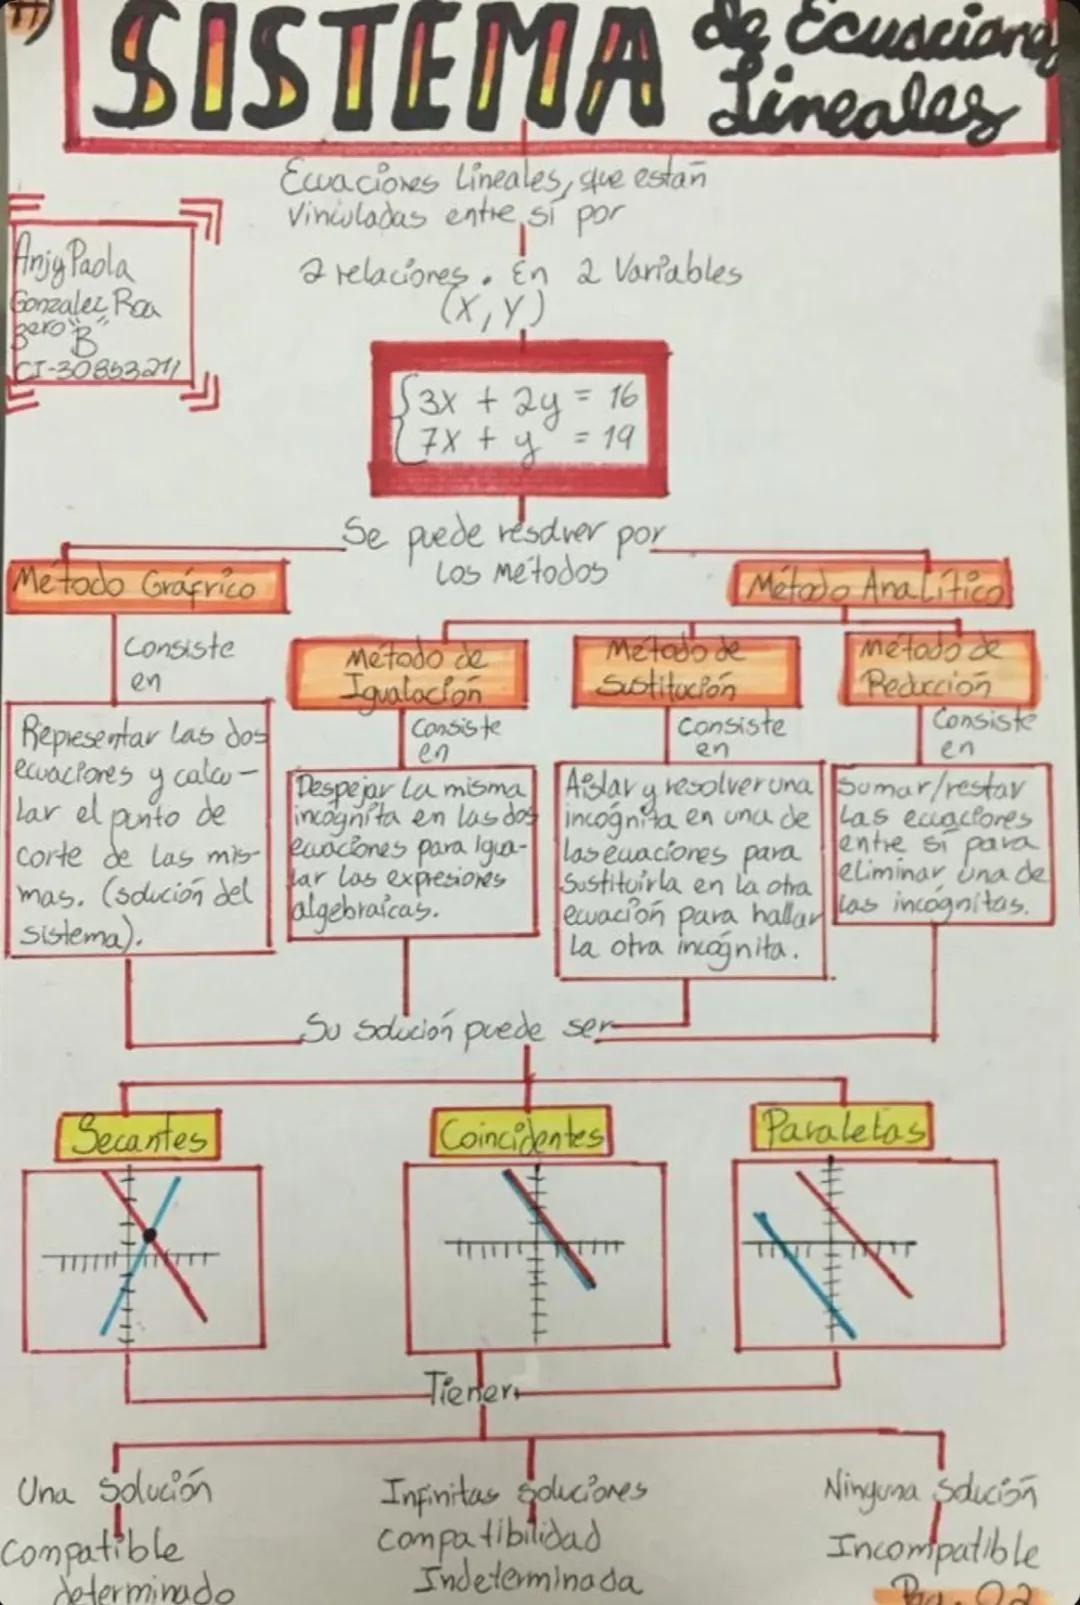 SISTEMA de Ecuaciones
Lineales
Ecuaciones Lineales, que están
Vinculadas entre sí por
2 relaciones. En 2 Variables
(X, Y)
Anjy Paola
Gonzalez Roa
3ero "B"
CI-30853211
3X + 2y = 16
7X + y = 19
Se puede resolver por
Los métodos
Método Gráfrico
Consiste
en
Representar Las dos
ecuaciones y calcu-
Lar el punto de
corte de Las mis-
mas. (solución del
sistema).
Método Analítico
Método de
Igualación
Consiste
en
Despejar La misma
incógnita en Las dos
ecuaciones para Igua-
lar Las expresiones
algebraicas.
Método de
Sustitución
Consiste
en
Aislar y resolver una
incógnita en una de
Las ecuaciones para
Sustituirla en La otra
ecuación para hallar
La otra incógnita.
método de
Reducción
Consiste
en
Sumar/restar
Las ecuaciones
entre sí para
eliminar una de
Las incógnitas.
Su solución puede ser
Secantes
Coincidentes
Paralelas
Tienen
Una Solución
Compatible
determinado
Infinitas soluciones
compatibilidad
Indeterminada
Ninguna Solución
Incompatible
Pag. 02